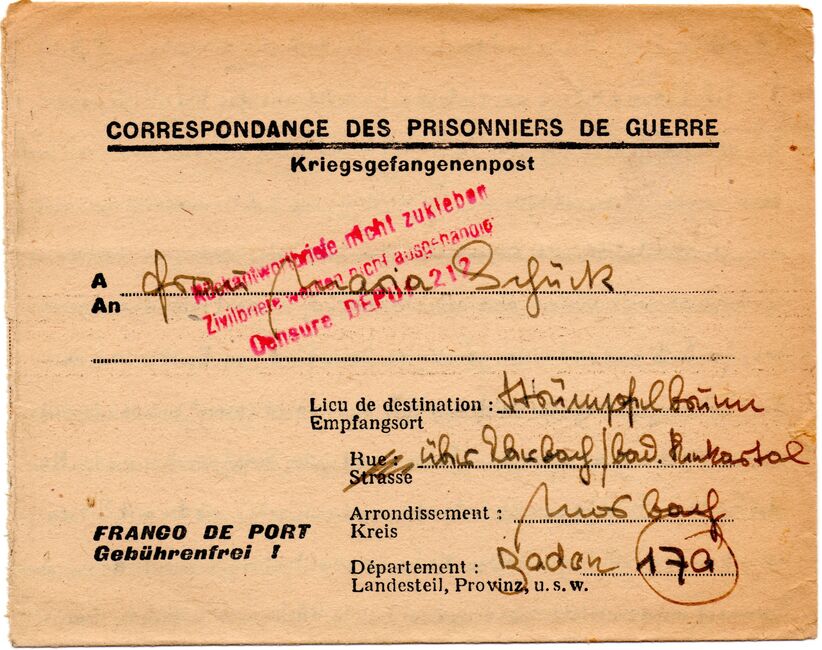 CORRESPONDANCE DES PRISONNIERS DE GUERRE
Kriegsgefangenenpost
Rückantwortbriefe nicht zukleben
Zivilbriefe werden nicht ausgehändigt
Censure DEPOT 212
A Frau Maria Schück
An
Lieu de destination : Strümpfelbrunn
Empfangsort
Rue : über Eberbach/bad. Neckartal
Strasse
Arrondissement : Mosbach
Kreis
FRANGO DE PORT
Gebührenfrei !
Département : Baden 17a
Landesteil, Provinz, u. s. w.